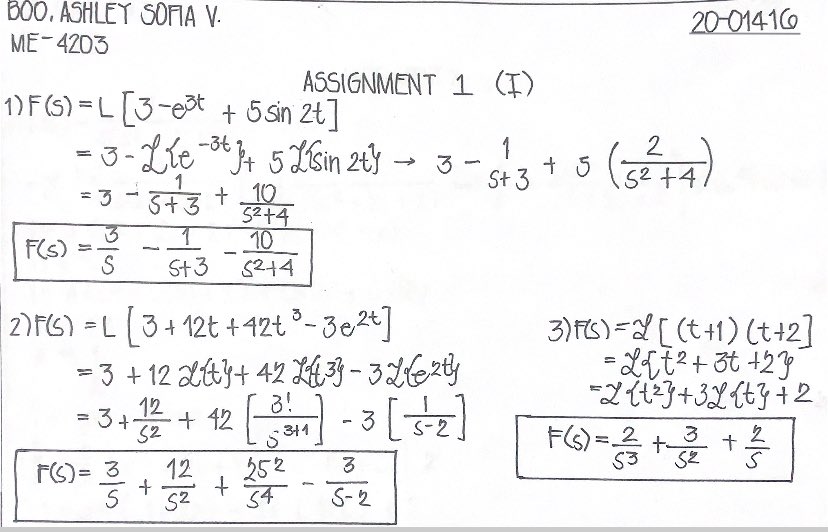 BOO, ASHLEY SOFIA V.
20-01416
ME-4203
ASSIGNMENT 1 (I)
1) F(s) = L [3 - e^3t + 5 sin 2t]
= 3 - ℒ{e^-3t} + 5 ℒ{sin 2t} → 3 - 1/(s+3) + 5 (2/(s²+4))
= 3 - 1/(s+3) + 10/(s²+4)
F(s) = 3/s - 1/(s+3) - 10/(s²+4)
2) F(s) = L [3 + 12t + 42t³ - 3e^2t]
= 3 + 12 ℒ{t} + 42 ℒ{t³} - 3 ℒ{e^2t}
= 3 + 12/s² + 42 [3!/s^3+1] - 3 [1/(s-2)]
F(s) = 3/s + 12/s² + 252/s⁴ - 3/(s-2)
3) F(s) = ℒ [(t+1) (t+2]
= ℒ{t² + 3t + 2}
= ℒ{t²} + 3ℒ{t} + 2
F(s) = 2/s³ + 3/s² + 2/s